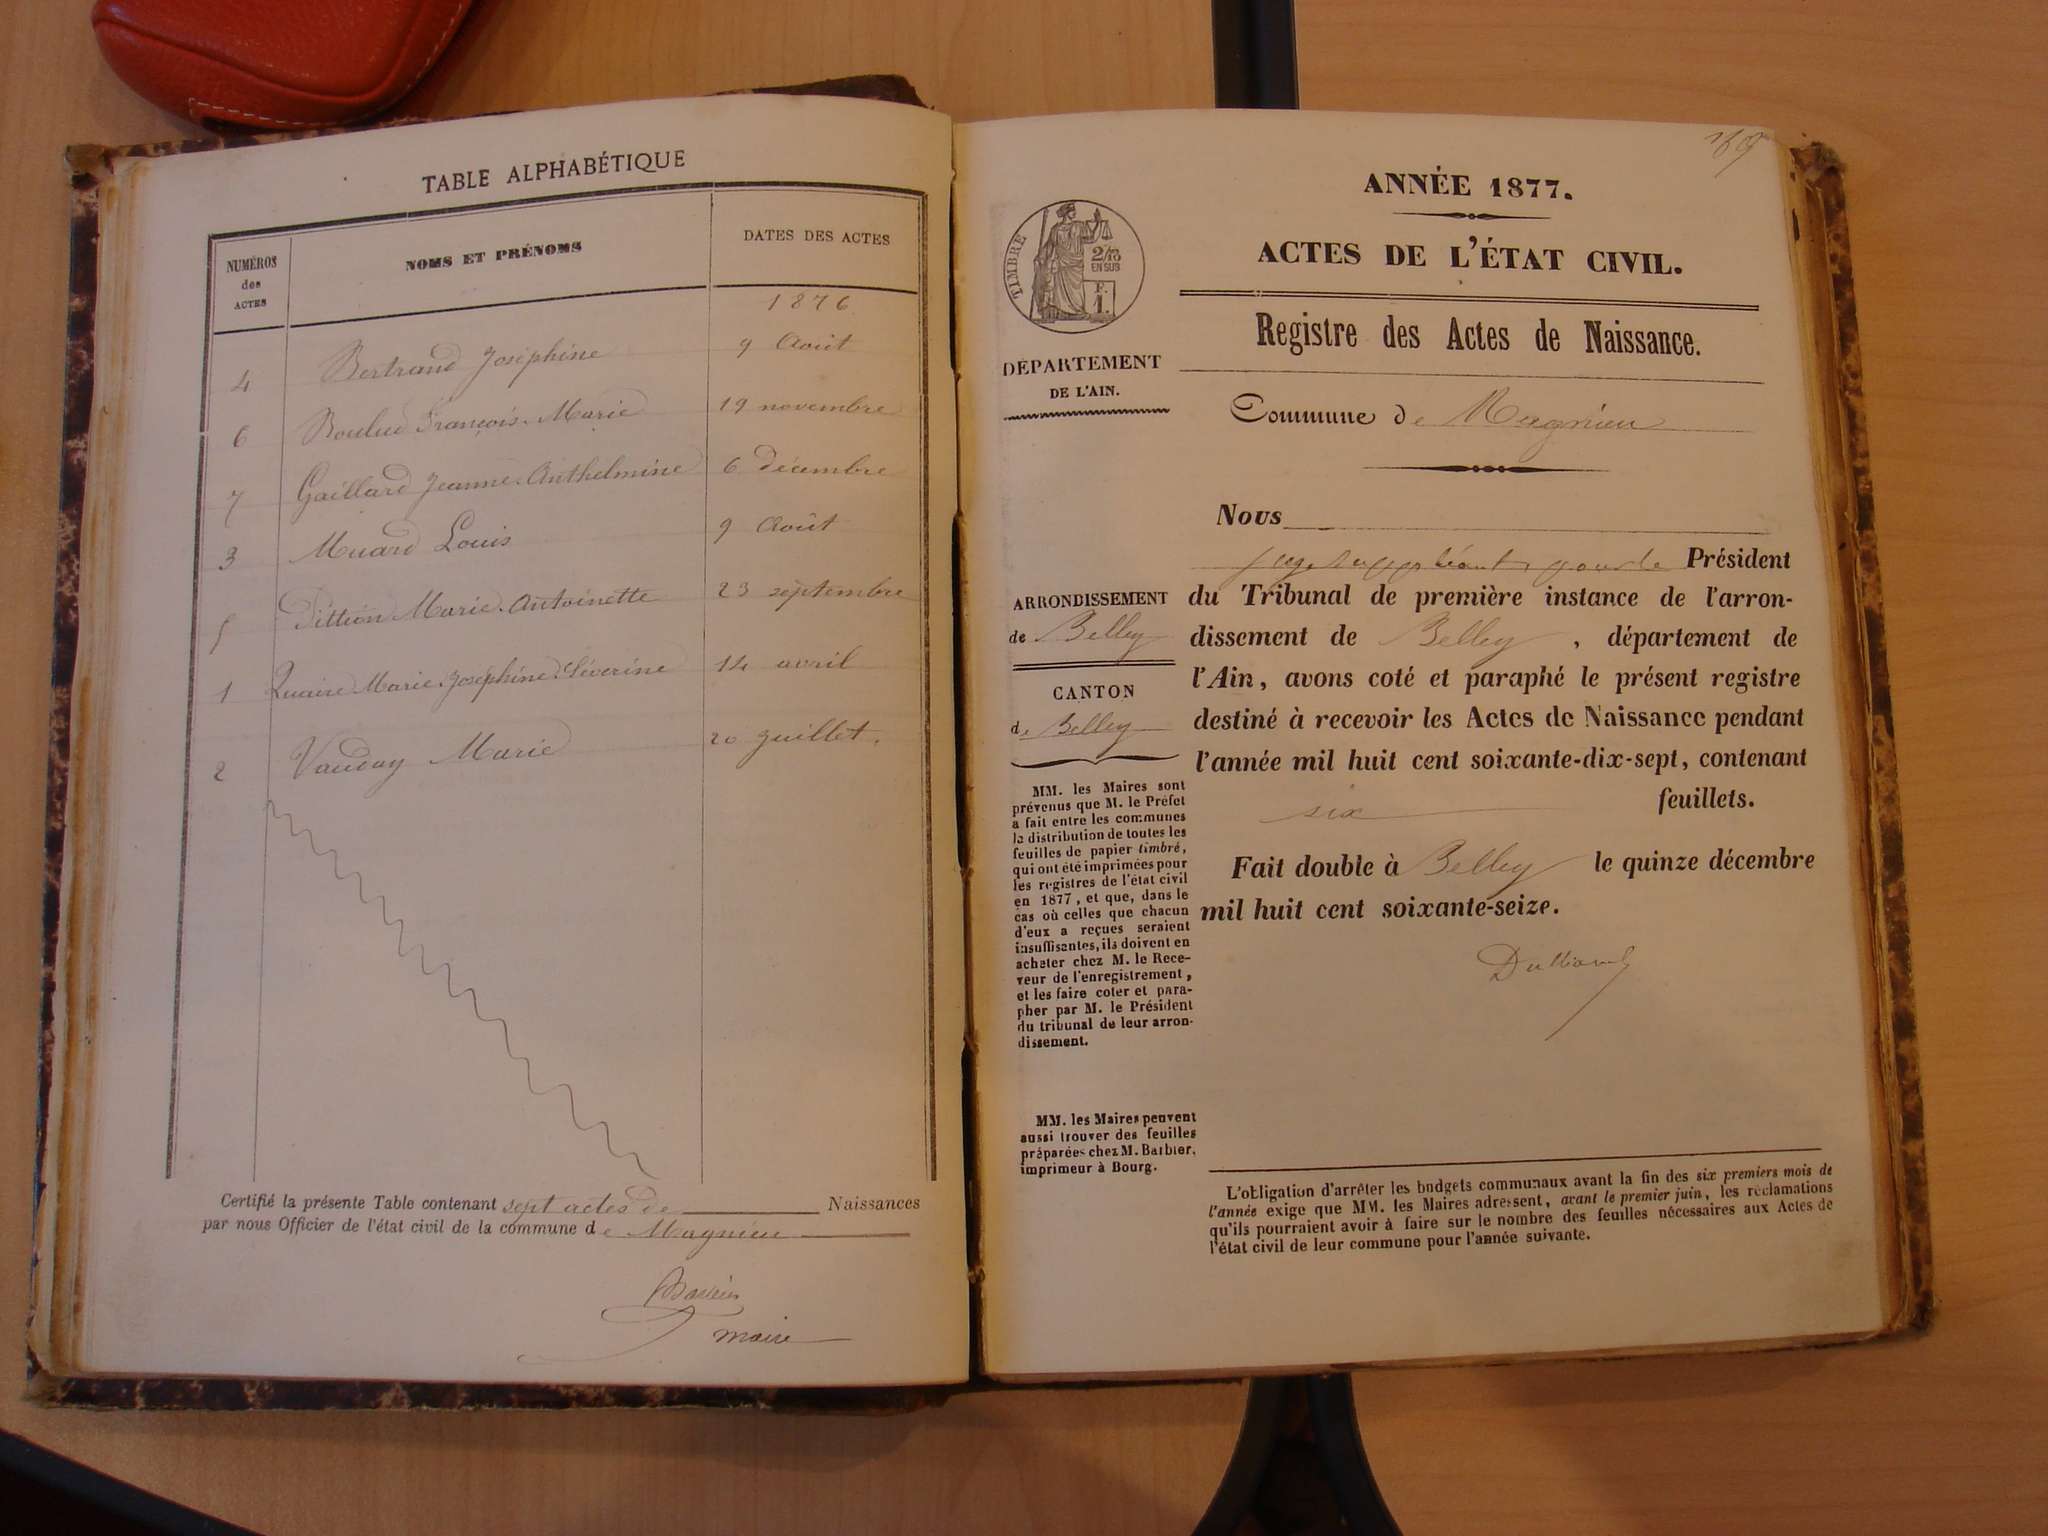 TABLE ALPHABÉTIQUE
NUMÉROS
des
ACTES
NOMS ET PRÉNOMS
DATES DES ACTES
1876
4 Bertrand Joséphine 9 Août
6 François-Marie 19 novembre
7 Gaillard Jeanne-Anthelmine 6 décembre
3 Muard Louis 9 Août
5 Pittion Marie-Antoinette 23 septembre
1 Quaire Marie-Joséphine-Séverine 14 avril
2 Vauday Marie 20 Juillet.
Certifié la présente Table contenant sept actes de Naissances
par nous Officier de l'état civil de la commune de Magnieu
maire
ANNÉE 1877.
ACTES DE L'ÉTAT CIVIL.
TIMBRE
2/10
EN SUS
F.
1.
Registre des Actes de Naissance.
DÉPARTEMENT
DE L'AIN.
Commune de Magnieu
Nous
juge suppléant, pour le Président
du Tribunal de première instance de l'arron-
dissement de Belley, département de
l'Ain, avons coté et paraphé le présent registre
destiné à recevoir les Actes de Naissance pendant
l'année mil huit cent soixante-dix-sept, contenant
six feuillets.
Fait double à Belley le quinze décembre
mil huit cent soixante-seize.
ARRONDISSEMENT
de Belley
CANTON
de Belley
MM. les Maires sont
prévenus que M. le Préfet
a fait entre les communes
la distribution de toutes les
feuilles de papier timbré,
qui ont été imprimées pour
les registres de l'état civil
en 1877, et que, dans le
cas où celles que chacun
d'eux a reçues seraient
insuffisantes, ils doivent en
acheter chez M. le Rece-
veur de l'enregistrement,
et les faire coter et para-
pher par M. le Président
du tribunal de leur arron-
dissement.
MM. les Maires peuvent
aussi trouver des feuilles
préparées chez M. Barbier,
imprimeur à Bourg.
L'obligation d'arrêter les budgets communaux avant la fin des six premiers mois de
l'année exige que MM. les Maires adressent, avant le premier juin, les réclamations
qu'ils pourraient avoir à faire sur le nombre des feuilles nécessaires aux Actes de
l'état civil de leur commune pour l'année suivante.